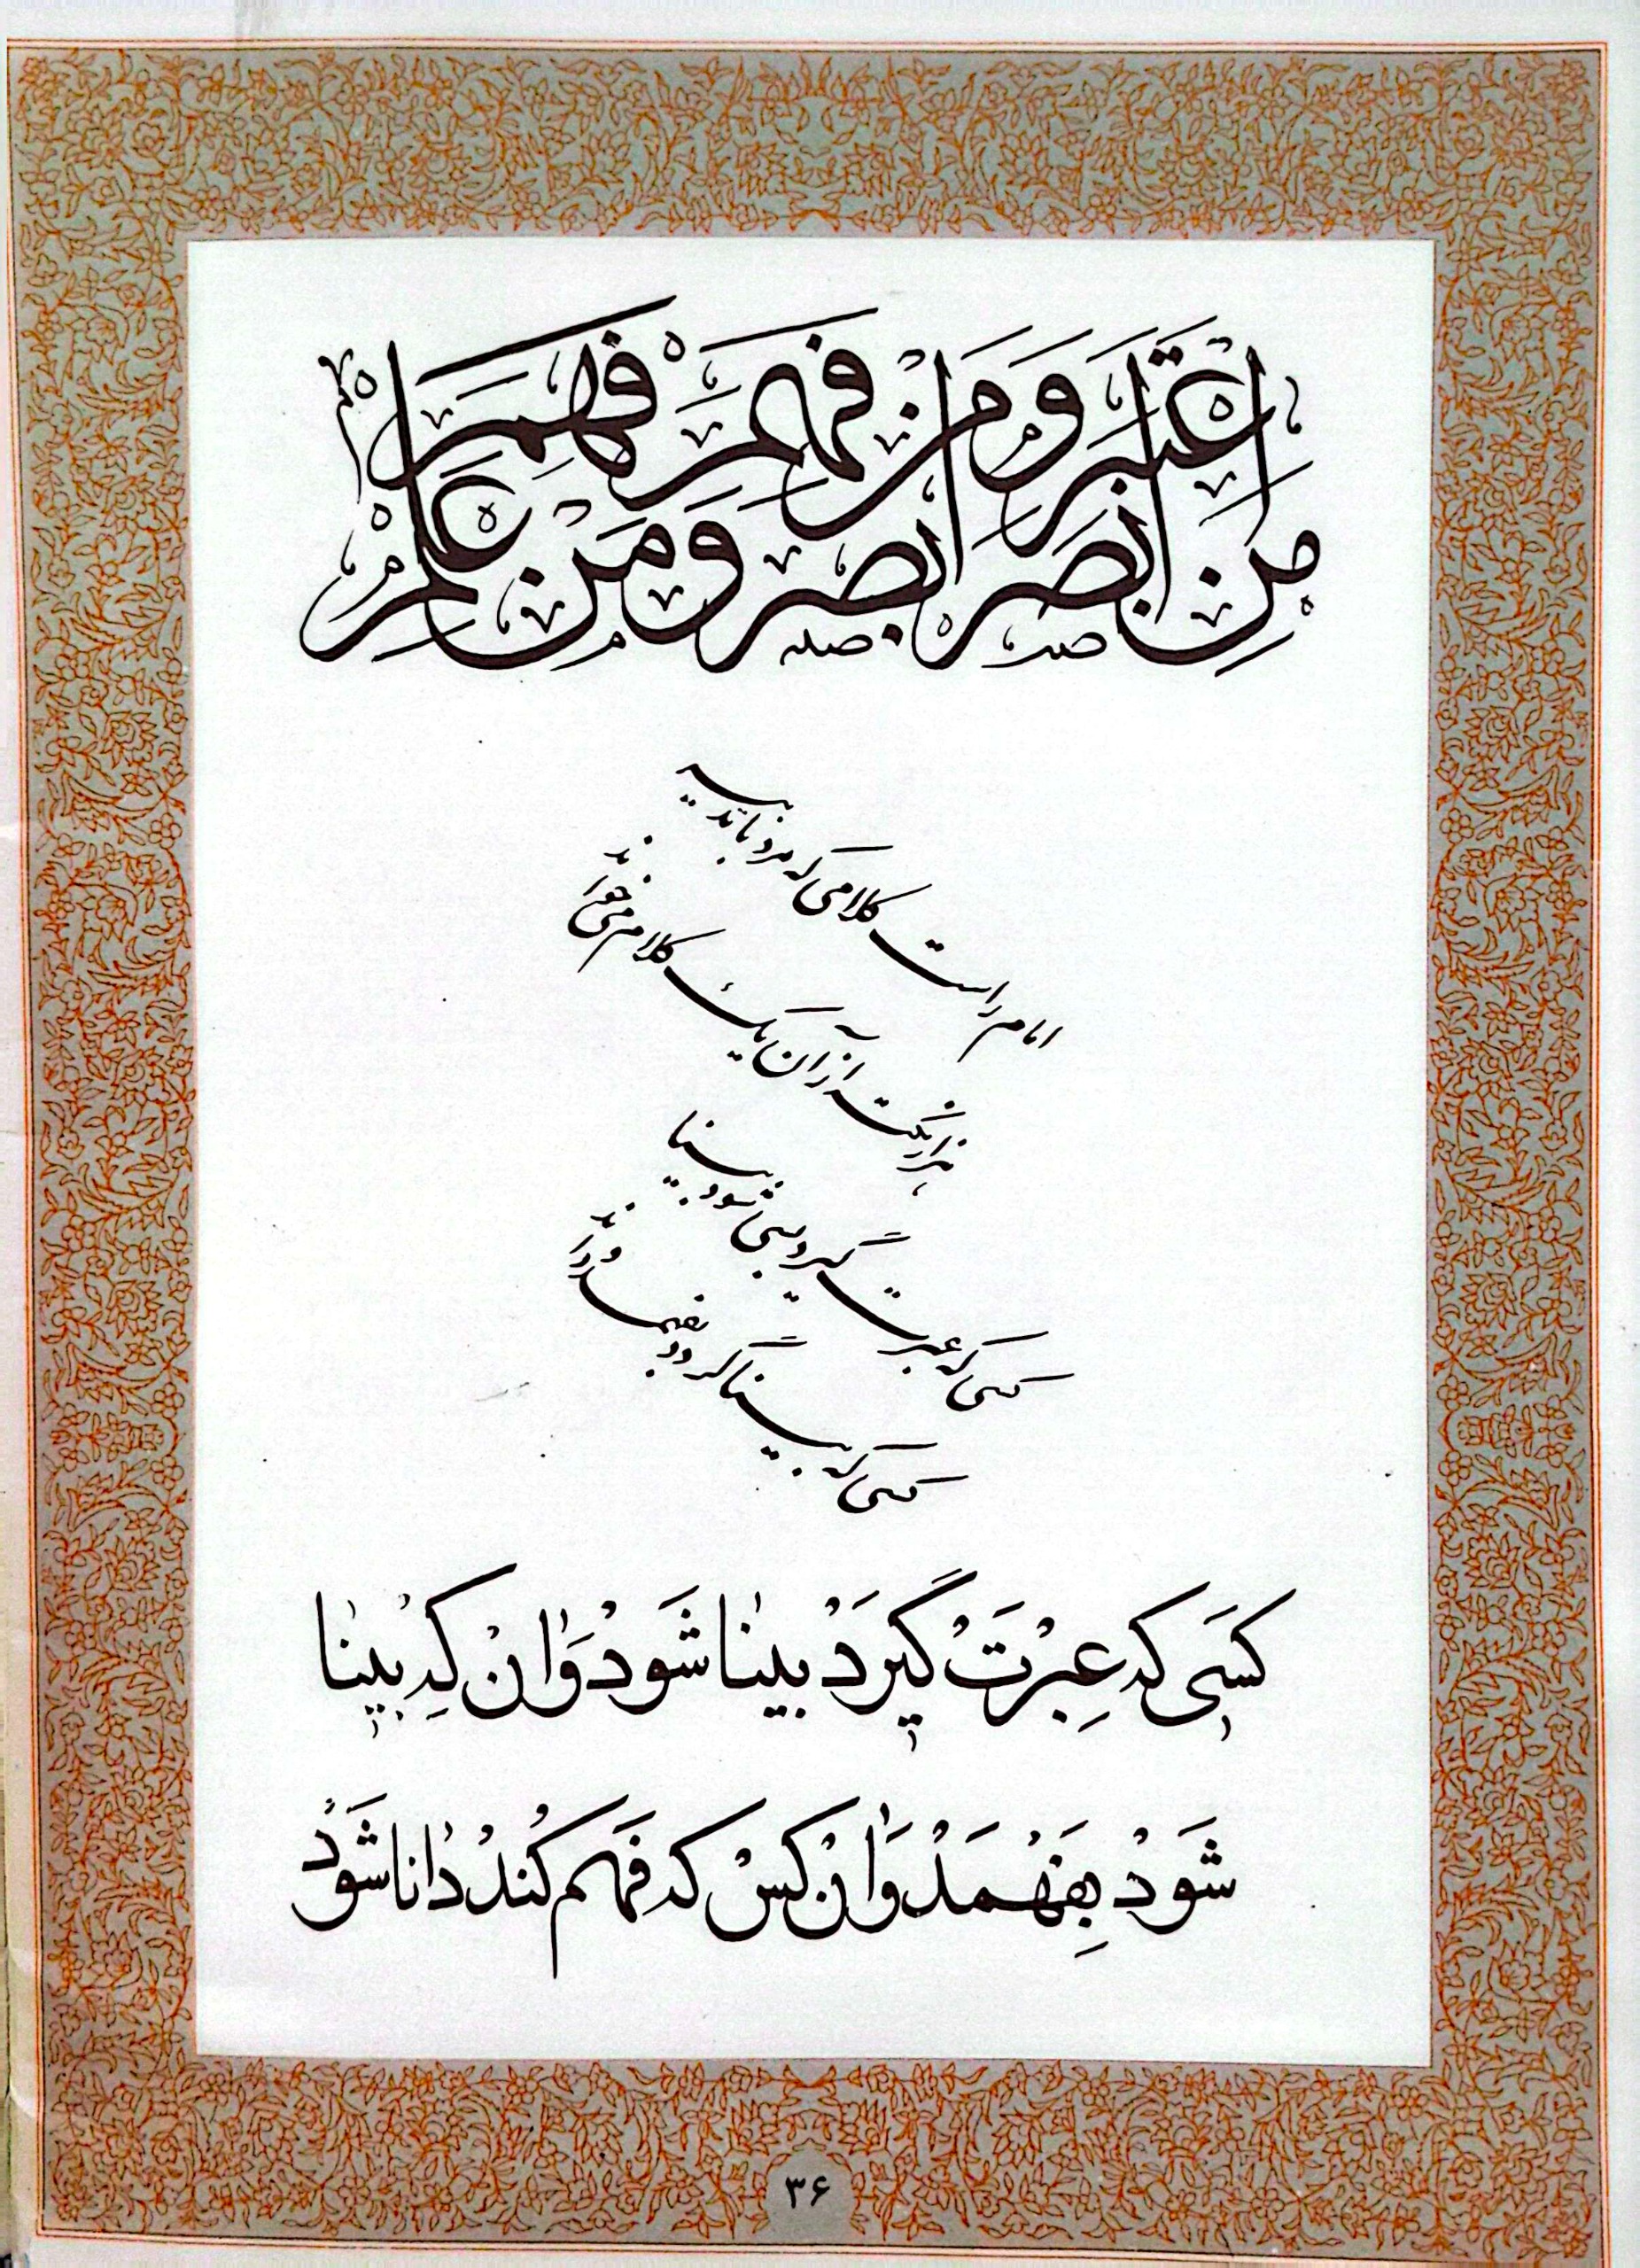 مَنِ اعْتَبَرَ اَبْصَرَ وَمَنْ اَبْصَرَ فَهِمَ وَمَنْ فَهِمَ عَلِمَ
امام راست کلامی که مرد با تدبیر
هزار نکته از آن یک کلام می خواند
کسی که عبرت گیرد شود بینا
کسی که بینا گردد بفهمد و داند
کسَی که عِبْرَتْ گیرَدْ بینا شَوَدْ وَانْ کِه بینا
شَوَدْ بِفَهْمَدْ وَانْ کَسْ که فَهم کُندْ دانا شَوَدْ
۳۶